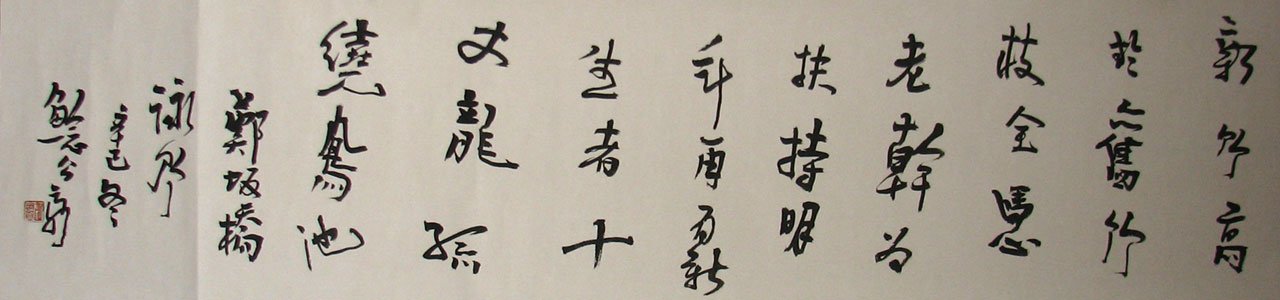 新竹高
於舊竹
枝全憑
老幹為
扶持明
年再有新
生者十
丈龍孫
繞鳳池
鄭坂橋
詠竹
辛巳冬